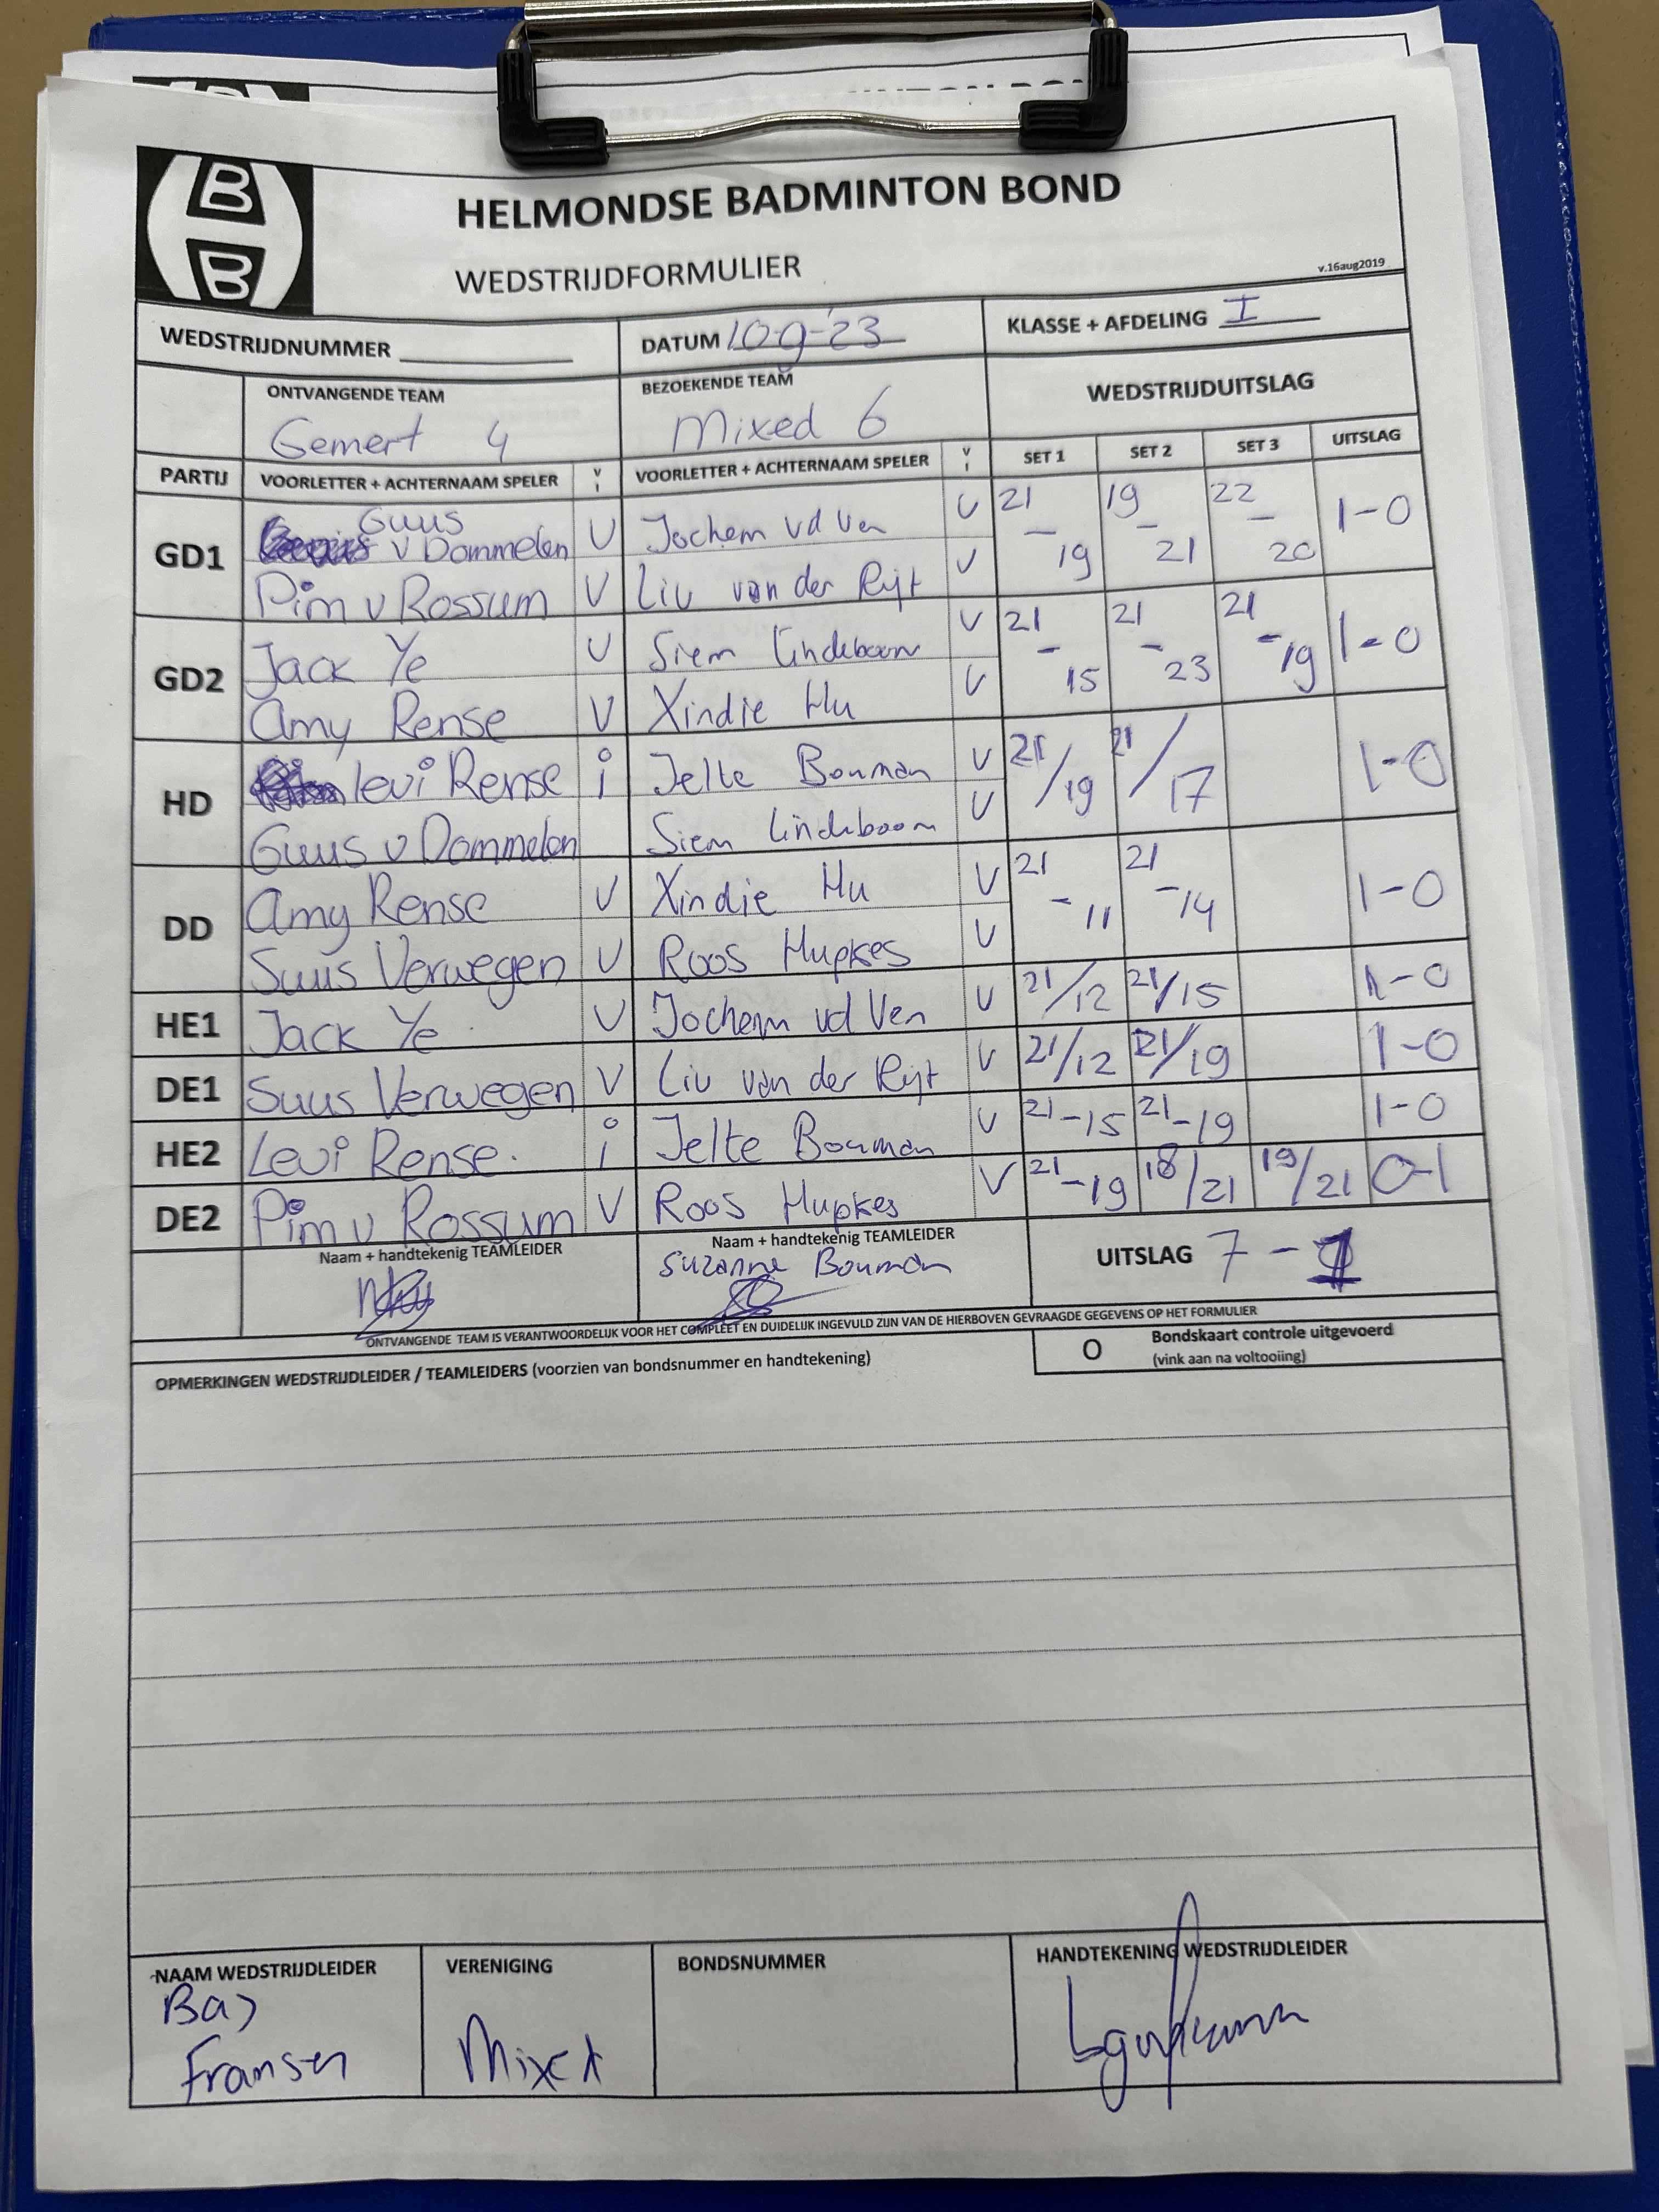 B
B
HELMONDSE BADMINTON BOND
WEDSTRIJDFORMULIER
v.16aug2019
WEDSTRIJDNUMMER
DATUM 10-9-'23
KLASSE + AFDELING I
ONTVANGENDE TEAM
BEZOEKENDE TEAM
WEDSTRIJDUITSLAG
Gemert 4
Mixed 6
PARTIJ VOORLETTER + ACHTERNAAM SPELER V I VOORLETTER + ACHTERNAAM SPELER V I SET 1 SET 2 SET 3 UITSLAG
GD1 Guus v Dommelen V Jochem vd Ven V 21-19 19-21 22-20 1-0
Pim v Rossum V Liv van der Rijt V
GD2 Jack Ye V Siem Lindeboom V 21-15 21-23 21-19 1-0
Amy Rense V Xindie Hu V
HD Levi Rense i Jelte Bouman V 21/19 21/17 1-0
Guus v Dommelen Siem Lindeboom V
DD Amy Rense V Xindie Hu V 21-11 21-14 1-0
Suus Verwegen V Roos Hupkes V
HE1 Jack Ye V Jochem vd Ven V 21/12 21/15 1-0
DE1 Suus Verwegen V Liv van der Rijt V 21/12 21/19 1-0
HE2 Levi Rense. i Jelte Bouman V 21-15 21-19 1-0
DE2 Pim v Rossum V Roos Hupkes V 21-19 18/21 19/21 0-1
Naam + handtekenig TEAMLEIDER
Naam + handtekenig TEAMLEIDER
Suzanne Bouman
UITSLAG 7-1
ONTVANGENDE TEAM IS VERANTWOORDELIJK VOOR HET COMPLEET EN DUIDELIJK INGEVULD ZIJN VAN DE HIERBOVEN GEVRAAGDE GEGEVENS OP HET FORMULIER
O Bondskaart controle uitgevoerd
(vink aan na voltooiing)
OPMERKINGEN WEDSTRIJDLEIDER / TEAMLEIDERS (voorzien van bondsnummer en handtekening)
NAAM WEDSTRIJDLEIDER
VERENIGING
BONDSNUMMER
HANDTEKENING WEDSTRIJDLEIDER
Bas
Fransen
Mixed